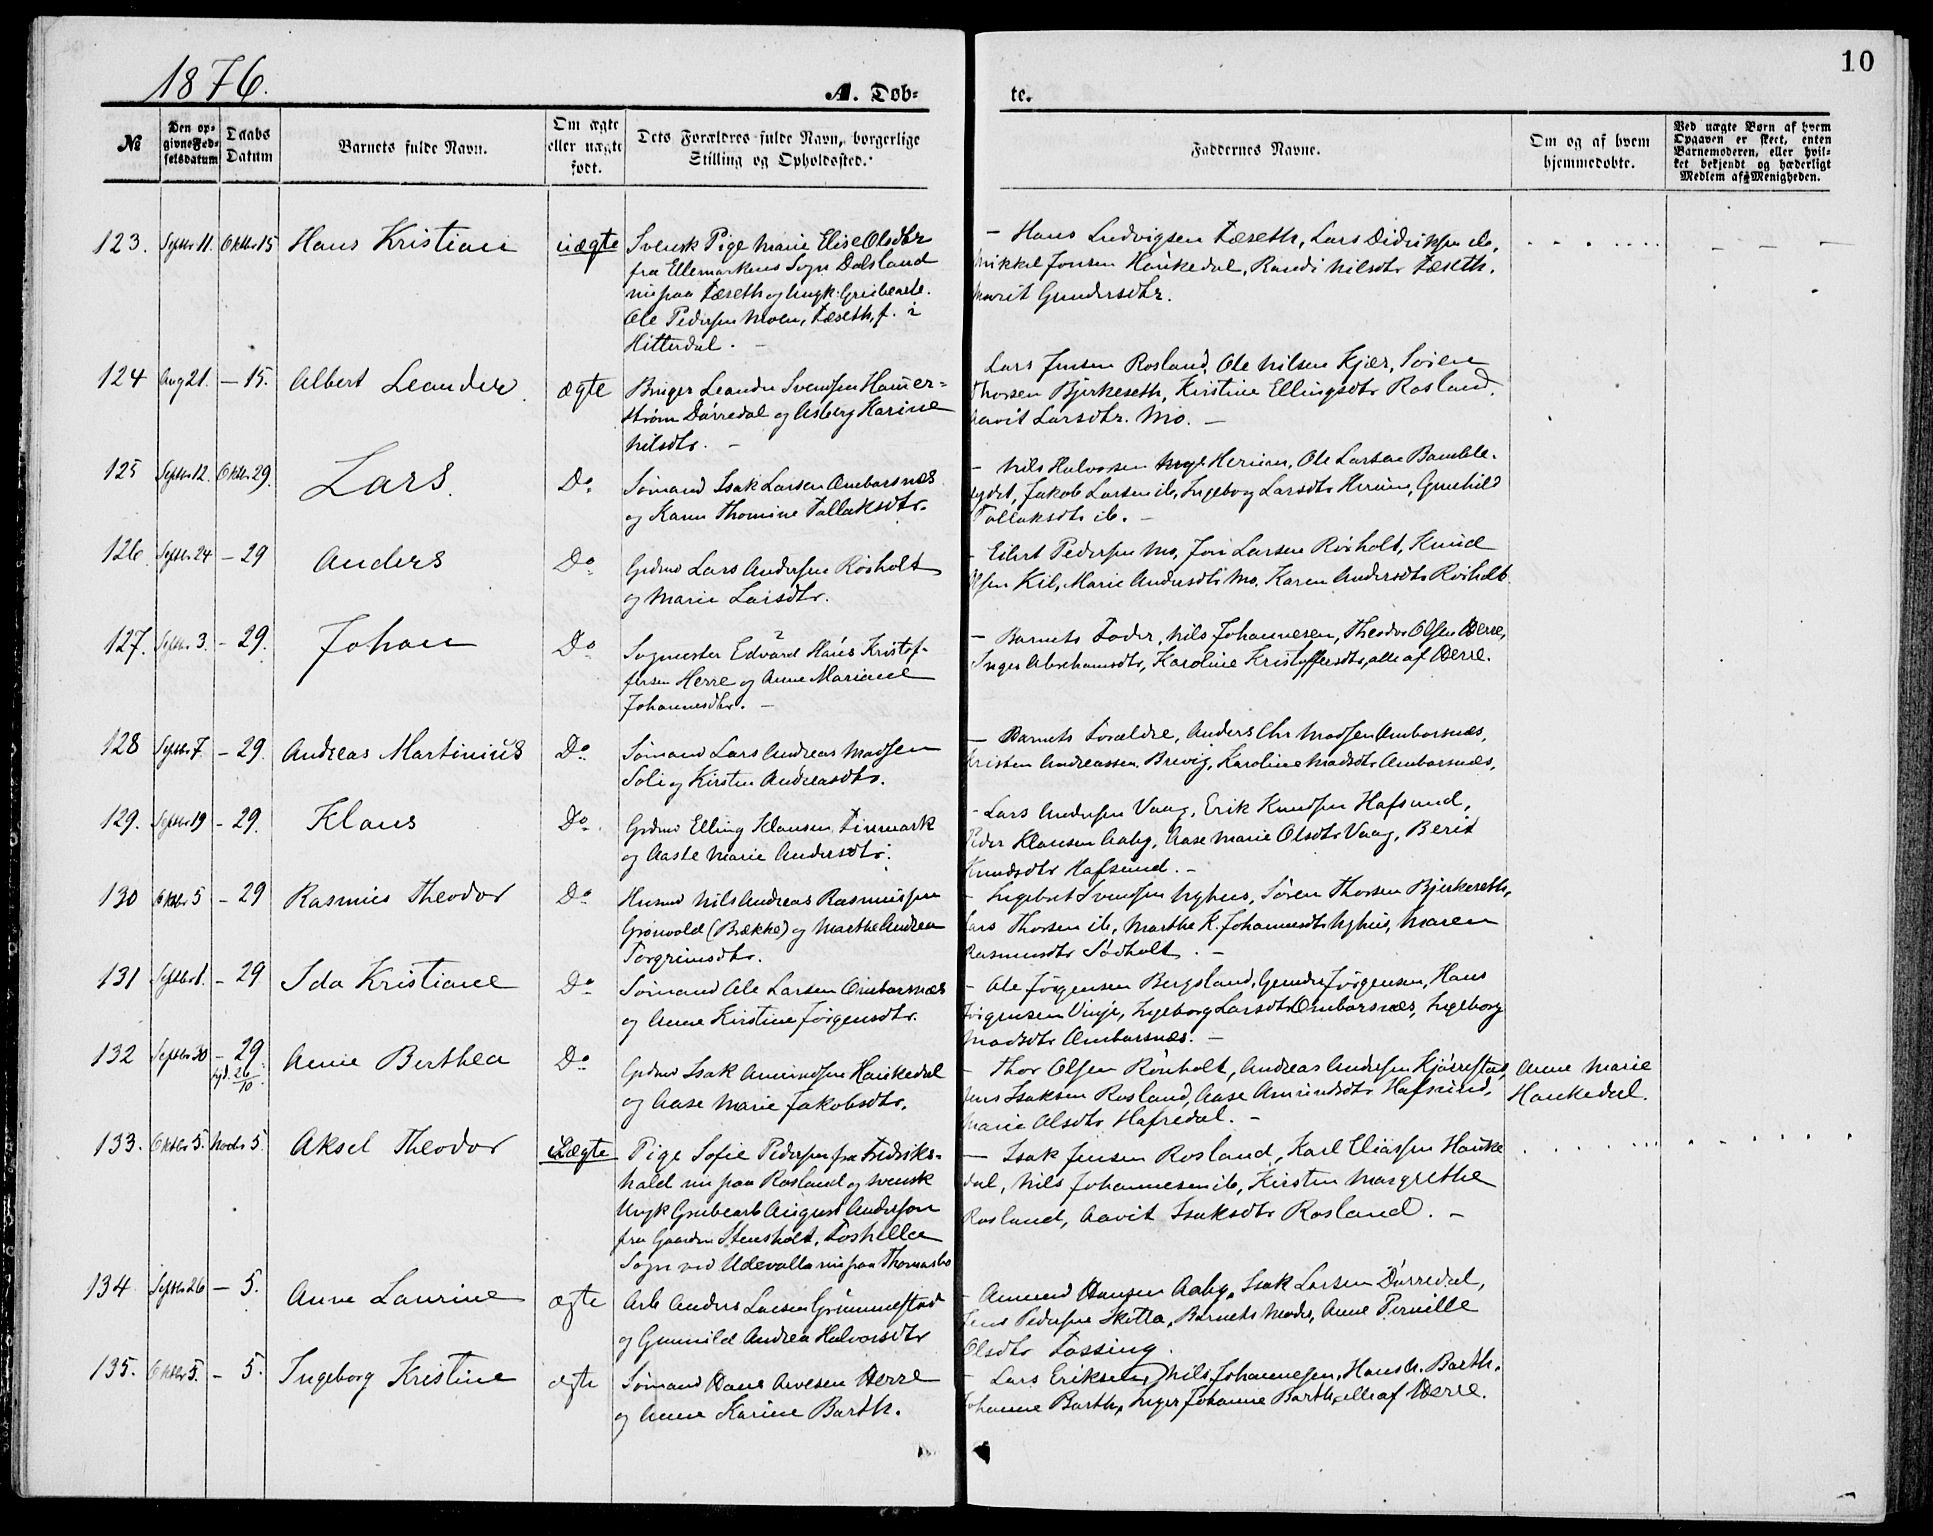 10
1876.
A. Døb-
te.
№
Den op-
givne Fød-
selsdatum
Daabs
Datum
Barnets fulde Navn.
Om ægte
eller uægte
født.
Dets Forældres fulde Navn, borgerlige
Stilling og Opholdssted.
Faddernes Navne.
Om og af hvem
hjemmedøbte.
Ved uægte Børn af hvem
Opgaven er skeet, enten
Barnemoderen, eller hvil-
ket bekjendt og hæderligt
Medlem af Menigheden.
123. Septbr 11. Oktbr 15 Hans Kristian uægte
Svensk Pige Marie Elise Olsdtr
fra Ellemarkens Sogn Dalsland
nu paa Tæseth og Ungk. Grubearb.
Ole Pedersen Moen, Tæseth, f. i
Hitterdal. –
– Hans Ludvigsen Tæseth, Lars Didriksen ib.,
Mikkel Jonsen Haukedal, Randi Nilsdtr Tæseth.
Marit Gundersdtr.
124 Aug 21. – 15. Albert Leander. ægte
Bruger Leander Svendsen Hamer-
strøm Dørredal og Asberg Karine
Nilsdtr. –
Lars Jensen Rosland, Ole Nilsen Kjær, Søren
Thorsen Bjerkeseth, Kirstine Ellingsdtr Rosland.
Aavit Larsdtr. Mo. –
125 Septbr 12. Oktbr 29. Lars. Do.
Sømand Isak Larsen Ombarsnæs
og Karen Thomine Tallaksdtr.
– Nils Halvorsen Herum, Ole Larsen Bamble-
, Jakob Larsen ib., Ingeborg Larsdtr Herum, Gunhild
Tallaksdtr ib. –
126. Septbr 24 – 29 Anders Do.
Grdmd Lars Andersen Rosholt
og Marie Larsdtr.
– Eilert Pedersen Mo, Jon Larsen Rosholt, Knud
Olsen Kil, Marie Andersdtr Mo, Karen Andersdtr Rosholt
127. Septbr 3. – 29. Johan Do
Sagmester Edvard Hans Kristof-
fersen Herre og Anne Mariane
Johannesdtr. –
– Barnets Fader, Nils Johannesen, Theodor Olsen Herre,
Inger Abrahamsdtr, Karoline Kristoffersdtr, alle af Herre.
128 Septbr 7. – 29. Andreas Martinius Do.
Sømand Lars Andreas Madsen
Soli og Kirsten Andreasdtr.
– Barnets Forældre, Anders Chr Madsen Ombarsnæs,
Kristen Andreassen Brevig, Karoline Madsdtr Ombarsnæs,
129. Septbr 19 – 29. Klaus Do.
Grdmd Elling Klausen Finmark
og Aaste Marie Andersdtr.
– Lars Andersen Vaag, Erik Knudsen Hafsund,
Peder Klausen Aaby, Aase Marie Olsdtr Vaag, Berit
Knudsdtr Hafsund. –
130 Oktbr 5 – 29 Rasmus Theodor Do
Husmd Nils Andreas Rasmussen
Grønvold (Bække) og Marthe Andrea
Torgrimsdtr.
– Ingebret Svendsen Nyhus, Søren Thorsen Bjerkeseth,
Lars Thorsen ib, Marthe K. Johannesdtr Nyhus, Maren
Rasmusdtr Sødholt. –
131 Septbr 1. – 29 Ida Kristiane Do
Sømand Ole Larsen Ombarsnæs
og Anne Kirstine Jørgensdtr.
– Ole Jørgensen Bergsland, Gunder Jørgensen, Hans
Jørgensen Vinje, Ingeborg Larsdtr Ombarsnæs, Ingeborg
Madsdtr Ombarsnæs. –
132 Septbr 30 – 29 Anne Berthea Do
hjd. 26/10.
Grdmd Isak Amundsen Haukedal
og Aase Marie Jakobsdtr.
– Thor Olsen Rønholt, Andreas Andersen Kjørrestad,
Jens Isaksen Rosland, Aase Amundsdtr Hafsund,
Marie Olsdtr Hafredal. –
Anne Marie
Haukedal.
133. Oktbr 5. Novbr 5. Aksel Theodor uægte
Pige Sofie Pedersen fra Fredriks-
hald nu paa Rosland og svensk
Ungk Grubearb August Anderson
fra Gaarden Stensholt, Foshellea
Sogn ved Udevalla nu paa Thomasbo
– Isak Jensen Rosland, Karl Eliassen Hauke
dal, Nils Johannesen ib, Kirsten Margrethe
Rosland, Aavit Isaksdtr Rosland. –
134 Septbr 26 – 5. Anne Laurine ægte
Arb Anders Larsen Grummestad
og Gunnild Andrea Halvorsdtr
– Amund Hansen Aaby, Isak Larsen Dørredal,
Jens Pedersen Skitta, Barnets Moder, Anne Pernille
Olsdtr Tossing.
135. Oktbr 5. – 5. Ingeborg Kristine ægte
Sømand Hans Arvesen Herre
og Anne Karine Barth.
– Lars Eriksen, Nils Johannesen, Hans Chr. Barth,
Johanne Barth, Inger Johanne Barth, alle af Herre.